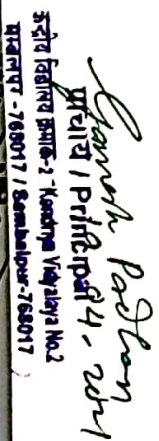 Ganesh Padhan
प्राचार्य / Principal
04-2021
केंद्रीय विद्यालय क्रमांक-2 "Kendriya Vidyalaya No.2
सम्बलपुर - 768017 / Sambalpur-768017